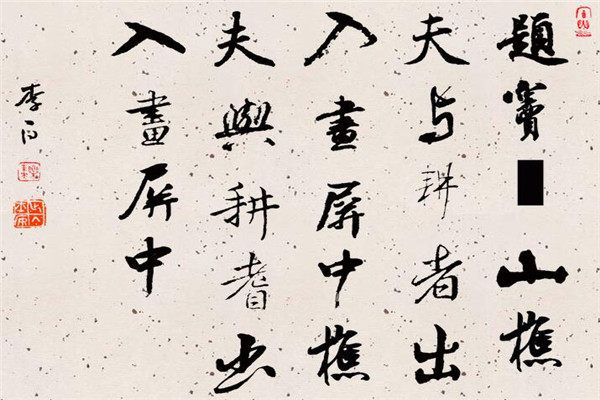 題竇山樵
夫与耕者出
入畫屏中樵
夫與耕者出
入畫屏中
李白